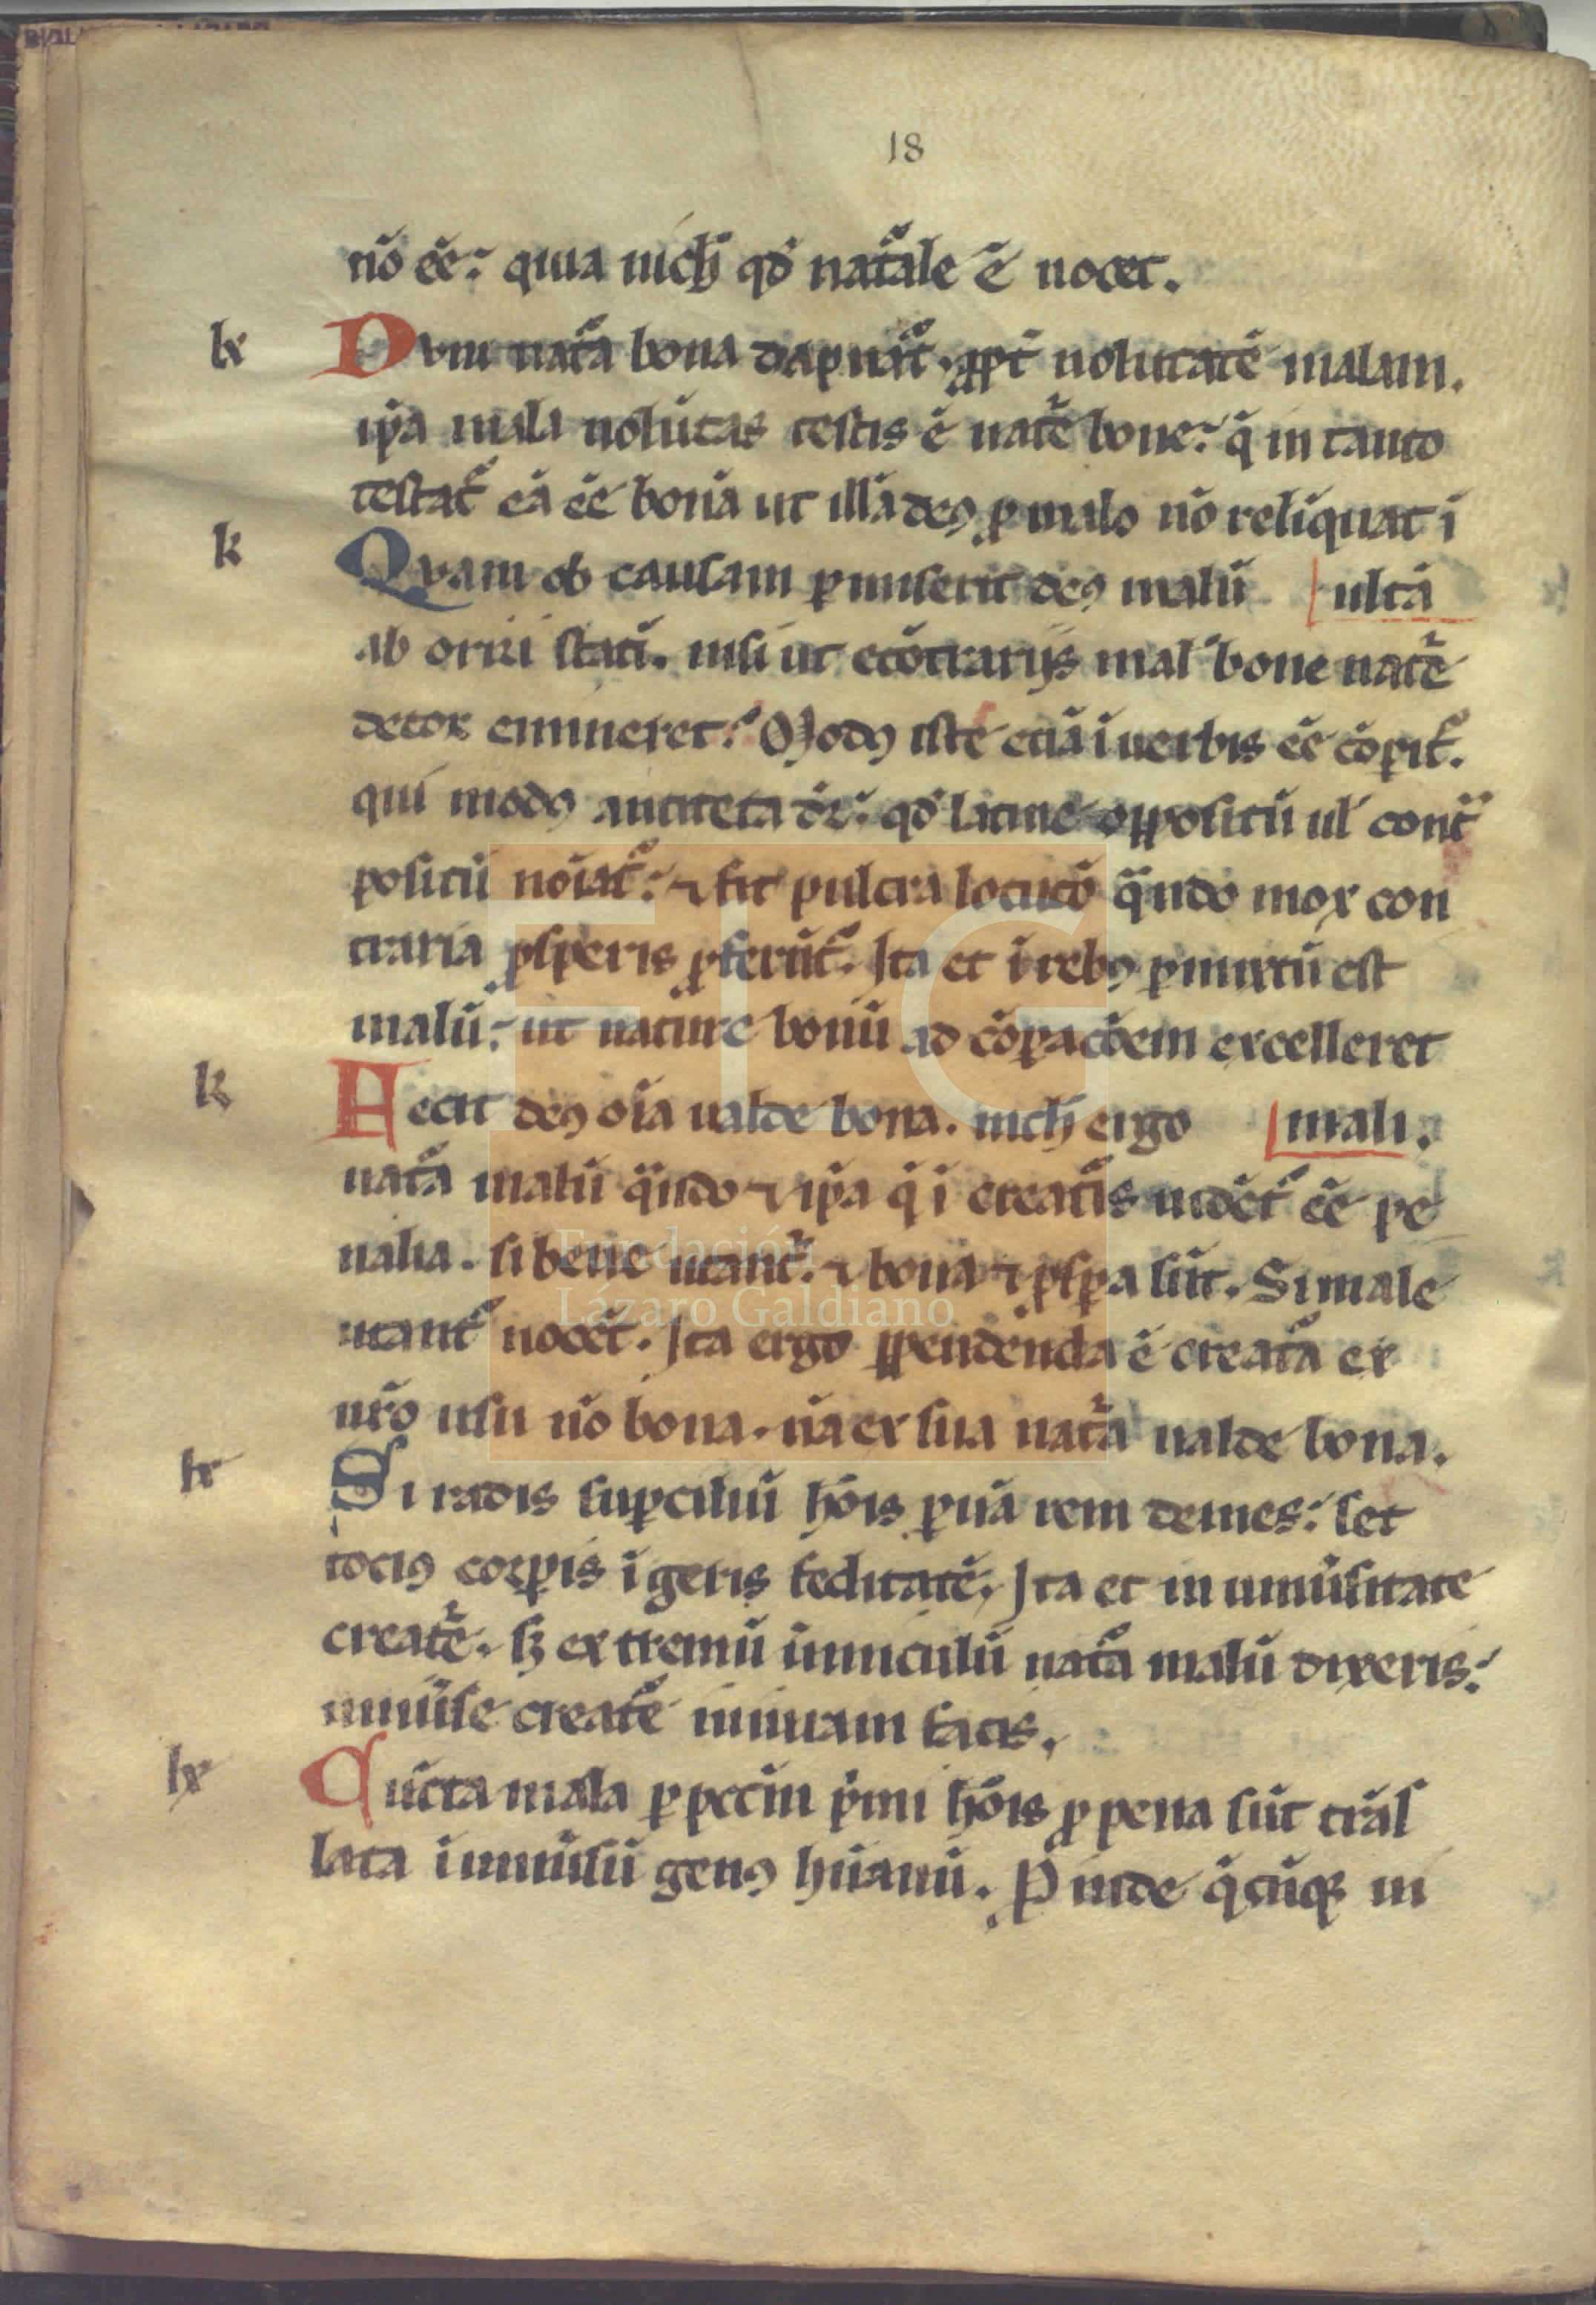 18
nō eē: quia nich̄ qd̄ nat̄ale ē nocet.
lx Dum nat̄a bona dapnat̄. ꝓpt̄ uolūtatē malam.
ip̄a mala uolūtas testis ē nat̄e bone: q̄ in tanto
testat̄ eā eē bonā ut illā deꝰ ꝓ malo nō relīquat ī
k Quam ob causam ꝑmiserit deꝰ malū ultā
ab oriri statī. nisi ut ecōtrarijs mal̄ bone nat̄e
decor emineret: Modꝰ iste etiā ī uerbis eē cōꝑit̄.
qui modꝰ antiteta dr̄: qd̄ latine oppositū ul̄ cont̄
positū noīat̄: ⁊ fit pulcra locutō q̄ndo mox con
traria ꝓsperis ꝓferūt̄. Ita et ī rebꝰ ꝑmixtū est
malū: ut nature bonū ad cōꝑacōem excelleret
k Fecit deꝰ oīa ualde bona. nich̄ ergo mali.
nat̄a malū q̄ndo ⁊ ip̄a q̄ ī creat̄is uidēt̄ eē pe
nalia. si bene utant̄: ⁊ bona ⁊ ꝓsꝑa sūt. Si male
utant̄ nocēt. Ita ergo ꝑpendenda ē creat̄a ex
nr̄o usu nō bona. nā ex sua nat̄a ualde bona.
lx Si radis suꝑciliū hōis ꝑuā rem demes: set
tociꝰ corꝑis īgeris feditatē. Ita et in uniūsitate
creat̄e. sꝫ extremū ūmiculū nat̄a malū dixeris:
uniūse creat̄e iniuriam facis.
lx Cūcta mala ꝑ pecc̄m p̄mi hōis ꝓ pena sūt trās
lata ī uniūsū genꝰ hūanū. Proinde q̄cūqꝫ in
Fundación
Lázaro Galdiano